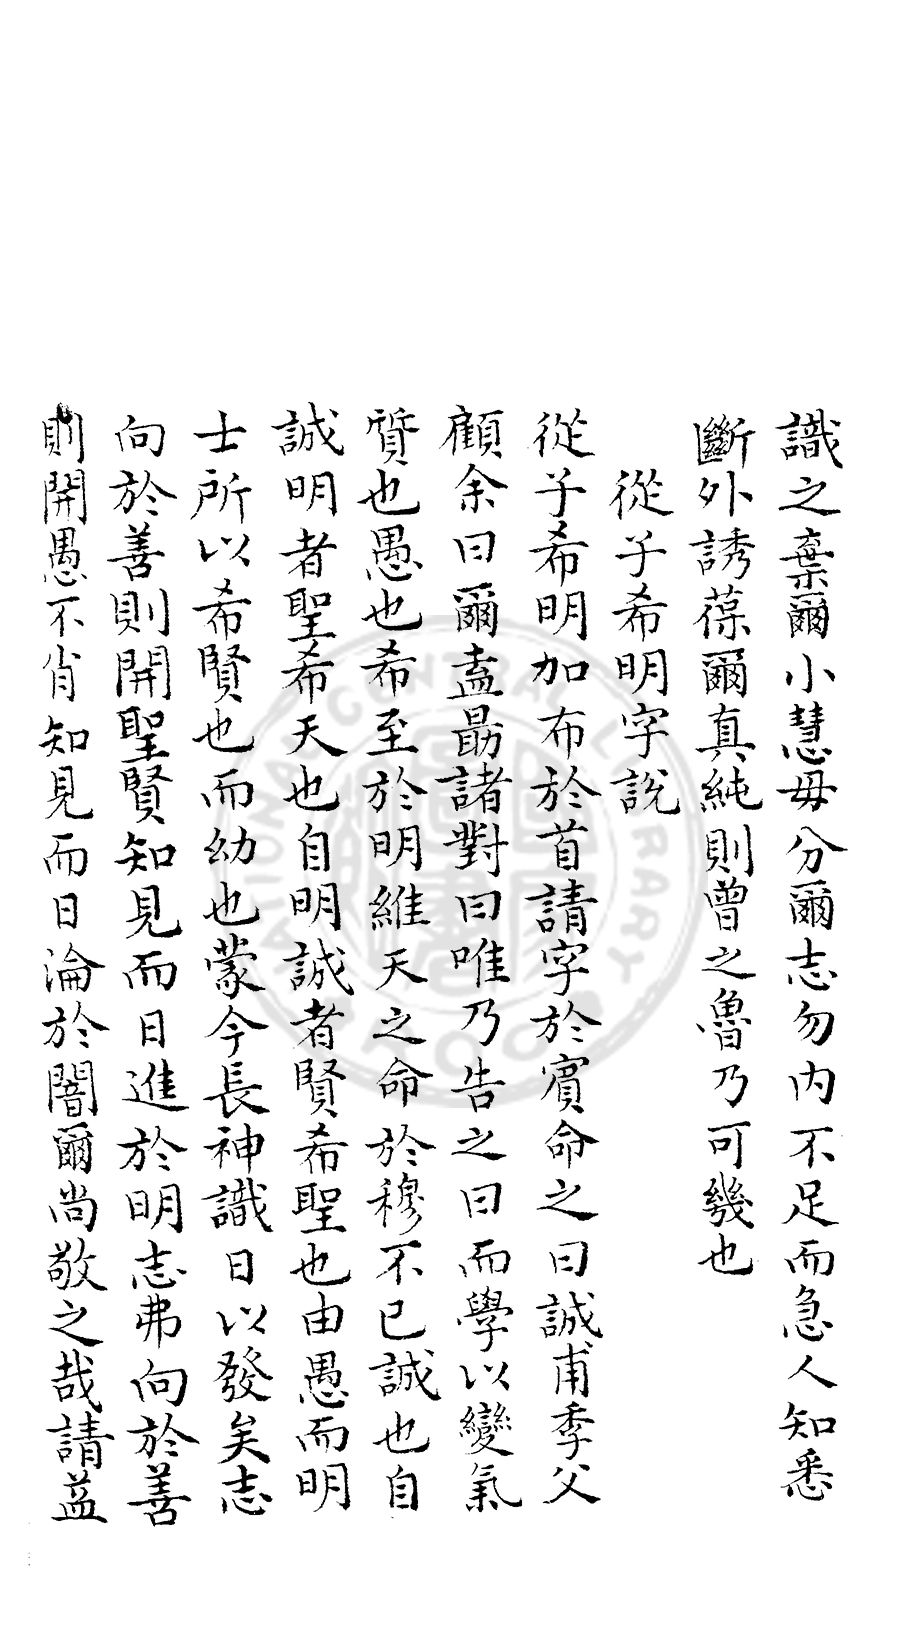 識之棄爾小慧毋分爾志勿内不足而急人知悉
斷外誘葆爾真純則曾之魯乃可幾也
從子希明字說
從子希明加布於首請字於賓命之曰誠甫季父
顧余曰爾盍勗諸對曰唯乃告之曰而學以變氣
質也愚也希至於明維天之命於穆不已誠也自
誠明者聖希天也自明誠者賢希聖也由愚而明
士所以希賢也而幼也蒙今長神識日以發矣志
向於善則開聖賢知見而日進於明志弗向於善
則開愚不肖知見而日淪於闇爾尚敬之哉請益
NATIONAL CENTRAL LIBRARY